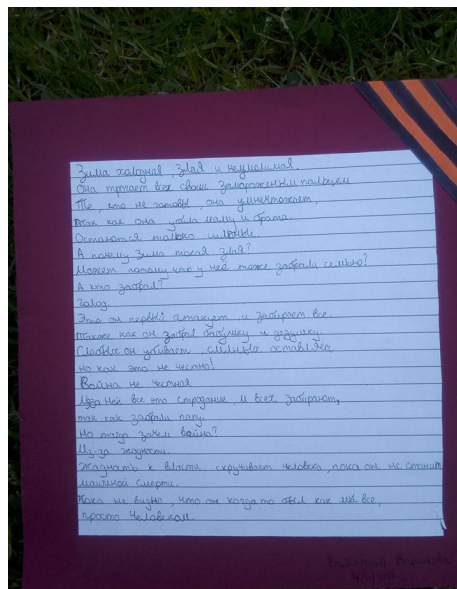 Зима халдная, злая и неумалимая.
Она тргает всех своим замороженым пальцем
Те, кто не готовы, она уминчтожает,
так как она убила маму и брата.
Остаются только сильные.
А почему Зима такая злая?
Может потому что у неё тоже забрали семью?
А кто забрал?
Голод.
Это он первый атакует и забирает все.
Также как он забрал бабушку и дедушку.
Слабых он убивает, сильных оставляя
но как это не честно!
Война не честная
Из-за неё все это стродание, и всех забирают,
так как забрали папу.
Но тогда зачем война?
Из-за жадности.
Жадность к власти скручивает человека, пока он не станит
машиной смерти.
Пока не видно, что он когда то был как мы все,
просто человеком.